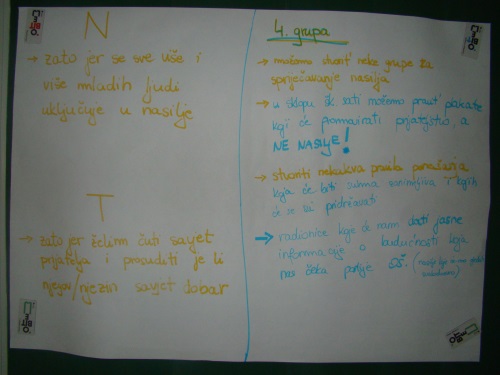 N
→ zato jer se sve više i
više mladih ljudi
uključuje u nasilje
T
→ zato jer želim čuti savjet
prijatelja i prosuditi je li
njegov/njezin savjet dobar
4. grupa
→ možemo stvoriti neke grupe za
spriječavanje nasilja
→ u sklopu šk. sati možemo praviti plakate
koji će promovirati prijateljstvo, a
NE NASILJE!
→ stvoriti nekakva pravila ponašanja
koja će biti svima zanimljiva i kojih
će se svi pridržavati
→ radionice koje će nam dati jasne
informacije o budućnosti koja
nas čeka poslije OŠ.